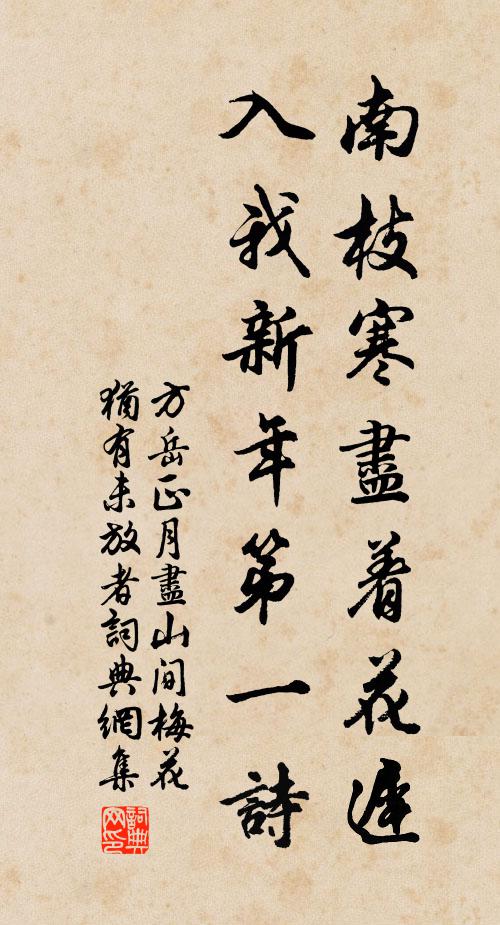 南枝寒盡着花遲
入我新年第一詩
方岳正月盡山间梅花
猶有未放者詞典網集
詞典网印